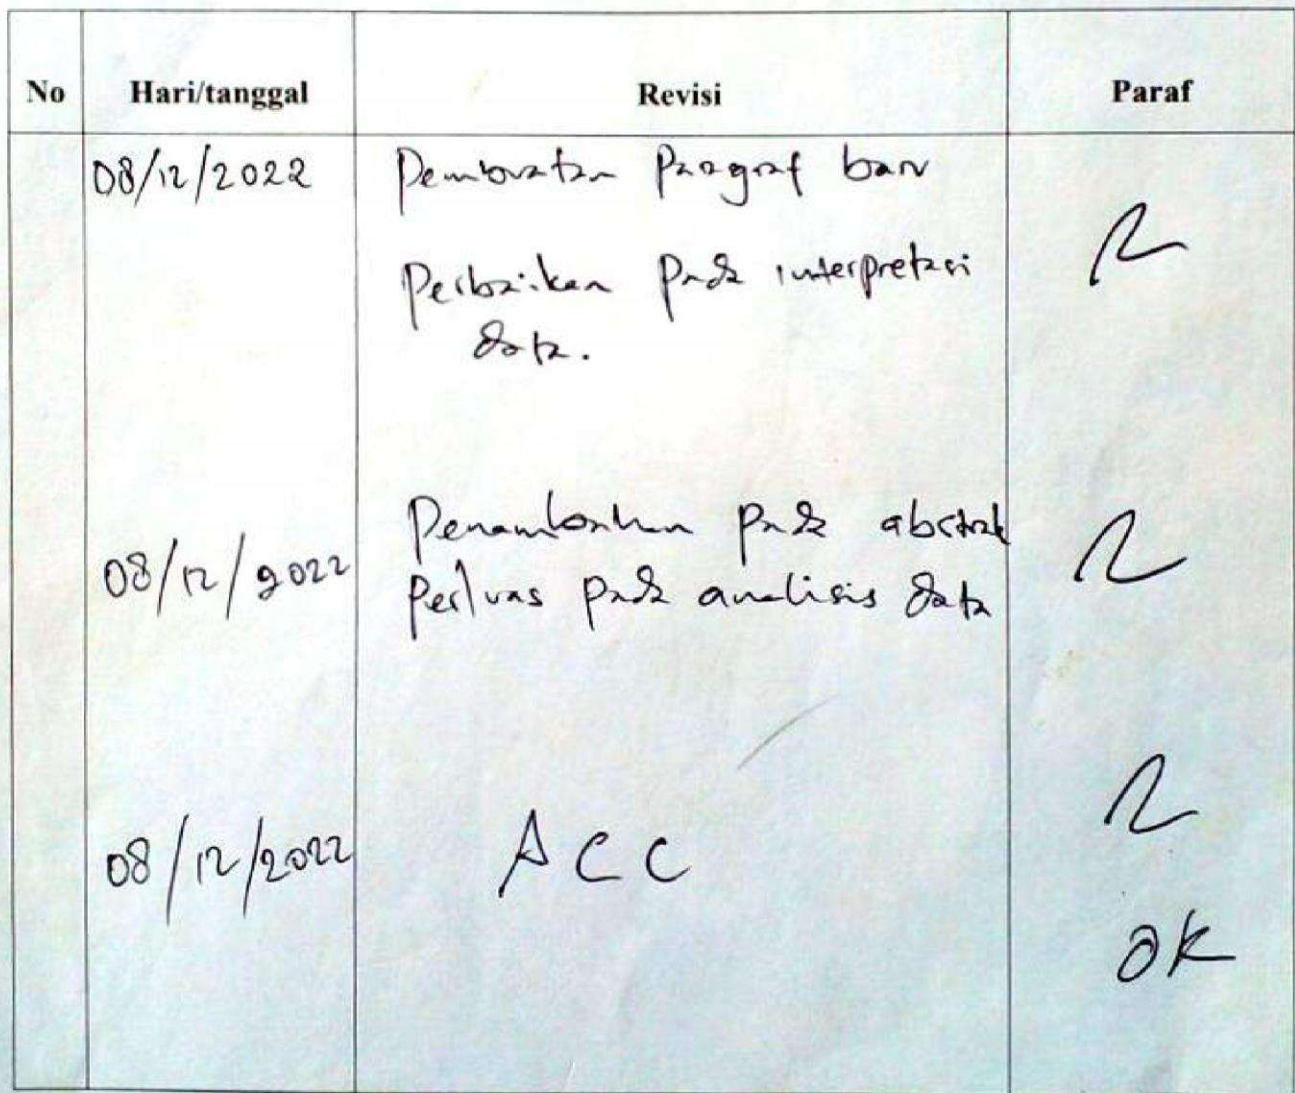 No Hari/tanggal Revisi Paraf
08/12/2022 Pembuatan Paragraf baru
Perbaikan Pada interpretasi
data.
08/12/2022 Penambahan pada abstrak
Perluas pada analisis data
08/12/2022 ACC
OK